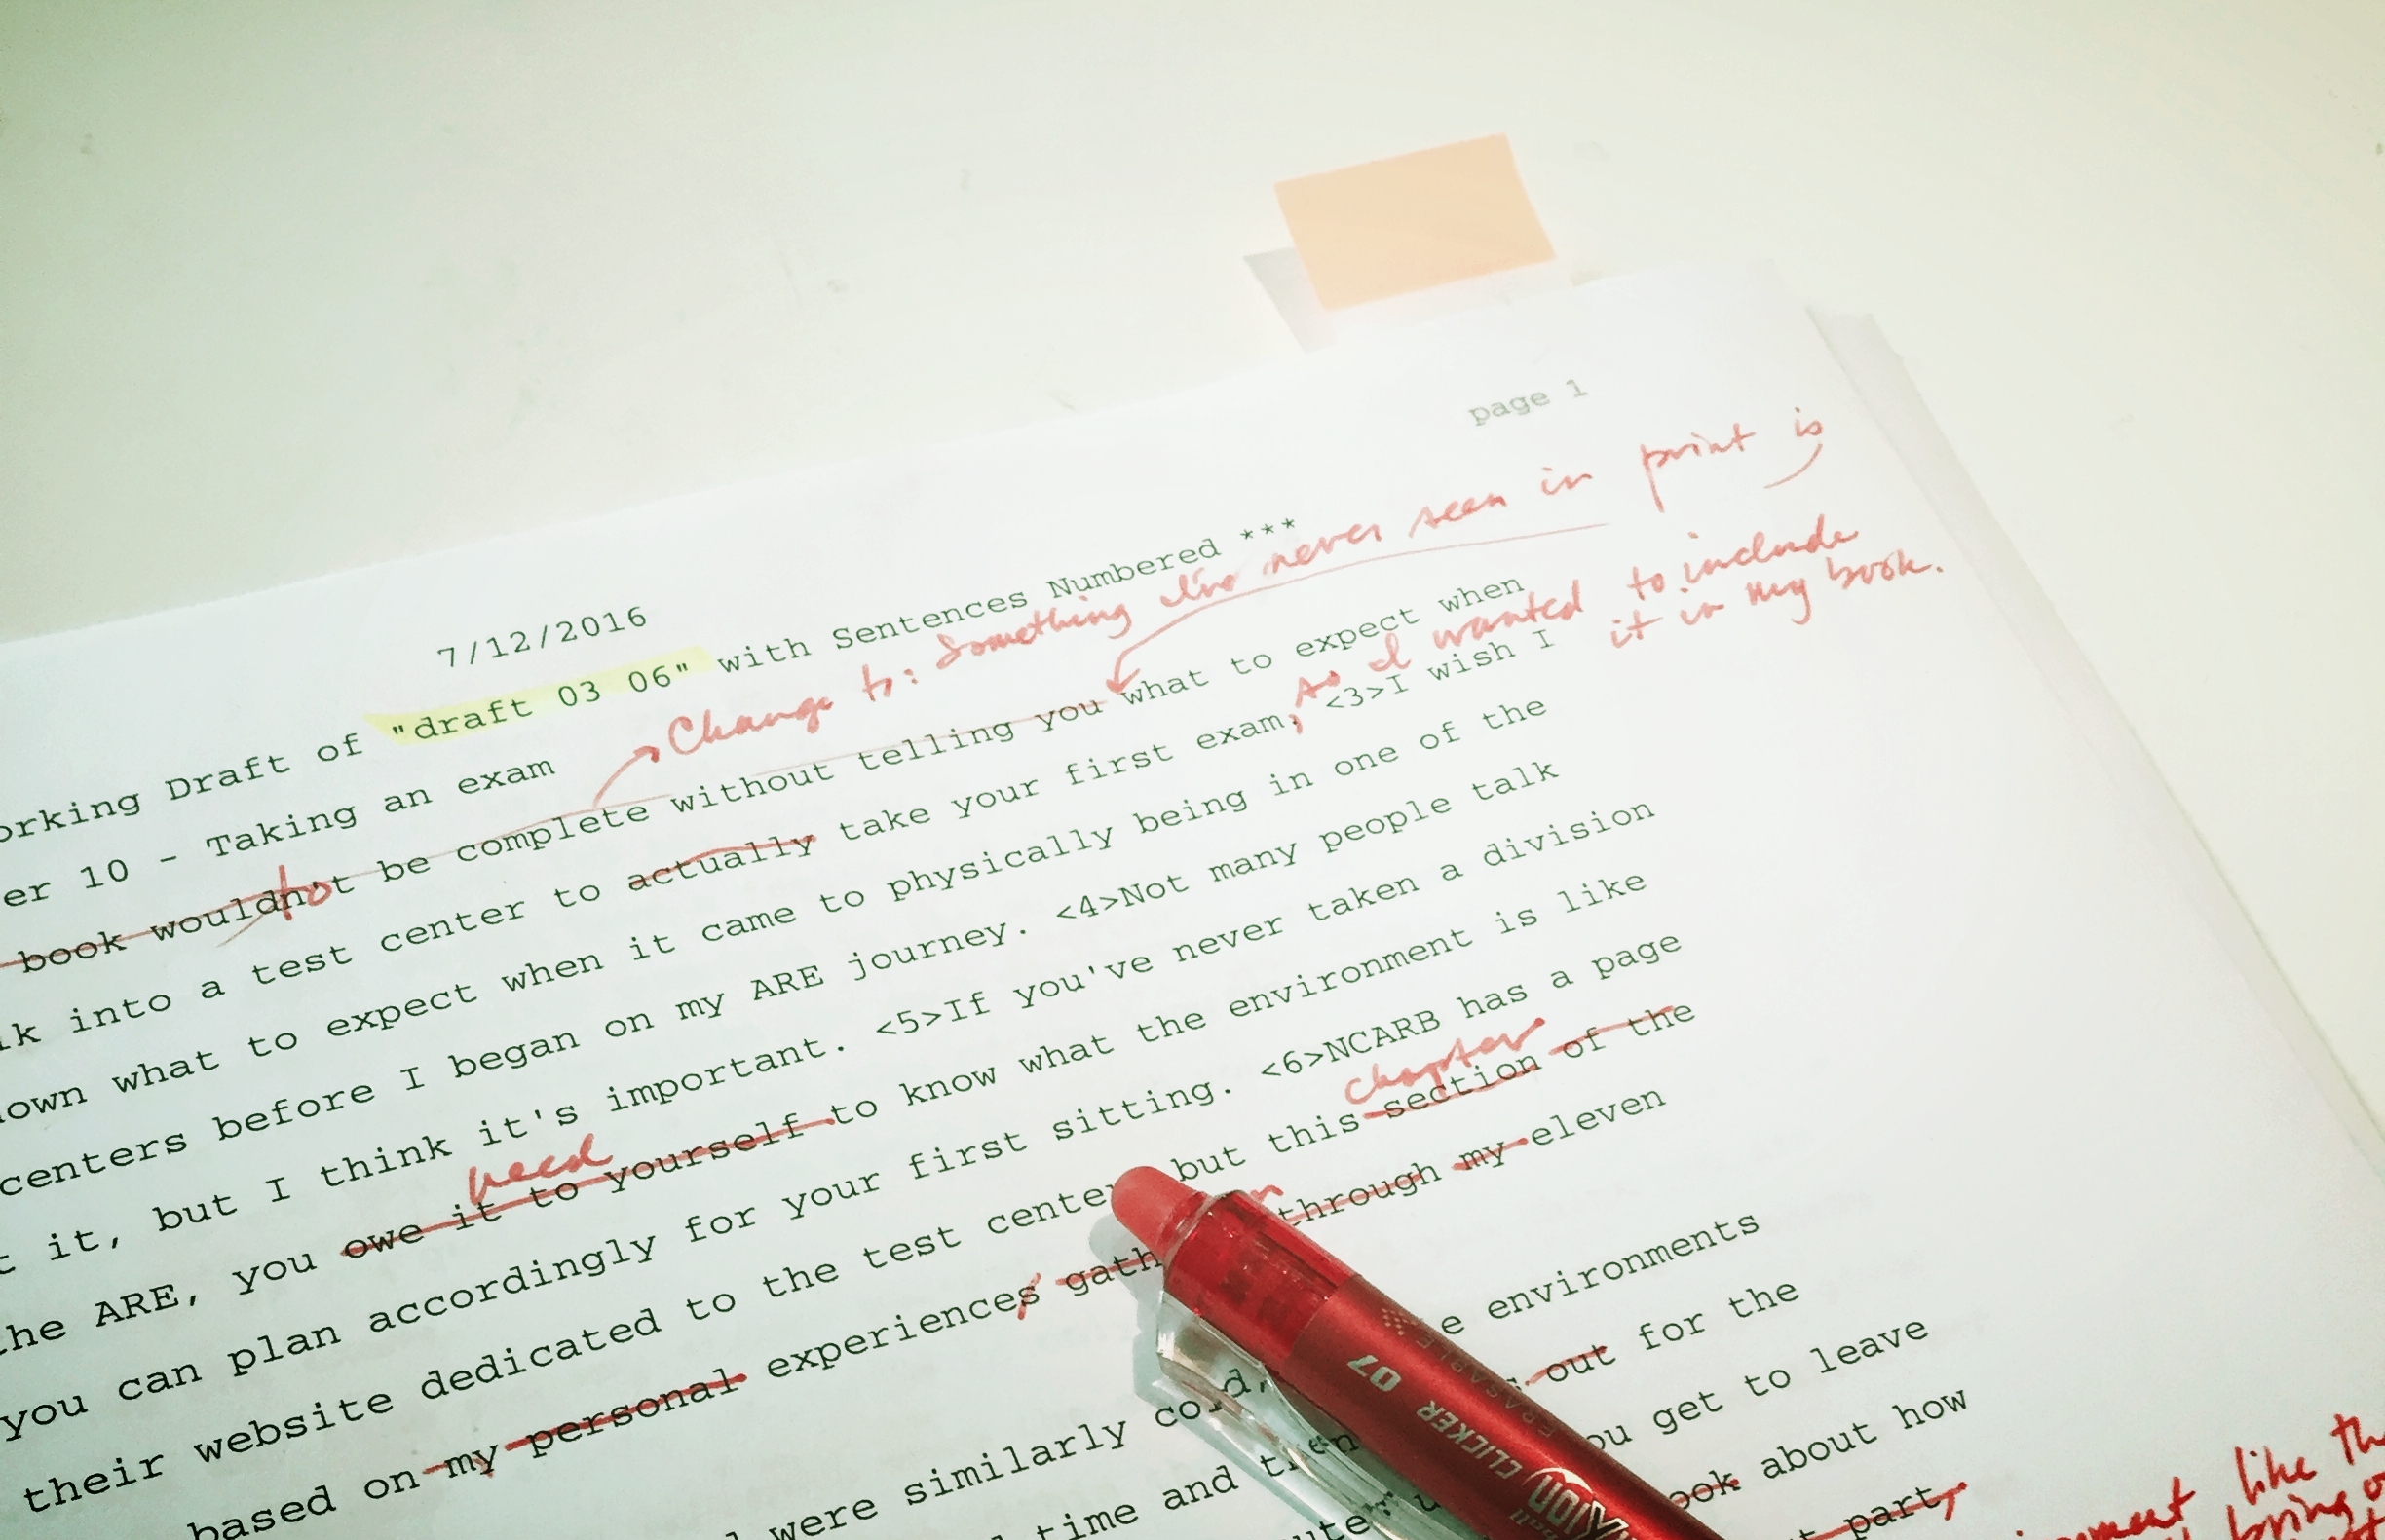 page 1
7/12/2016
Working Draft of "draft 03 06" with Sentences Numbered ***
Change to: Something I've never seen in print is
er 10 - Taking an exam
book wouldn't be complete without telling you what to expect when
to
so I wanted to include
it in my book.
lk into a test center to actually take your first exam, <3>I wish I
own what to expect when it came to physically being in one of the
centers before I began on my ARE journey. <4>Not many people talk
t it, but I think it's important. <5>If you've never taken a division
need
he ARE, you owe it to yourself to know what the environment is like
you can plan accordingly for your first sitting. <6>NCARB has a page
chapter
their website dedicated to the test center but this section of the
based on my personal experiences gath through my eleven
were similarly cold, e environments
time and then out for the
ute you get to leave
ook about how
part,
like
bring
CLICKER 07
ERASABLE